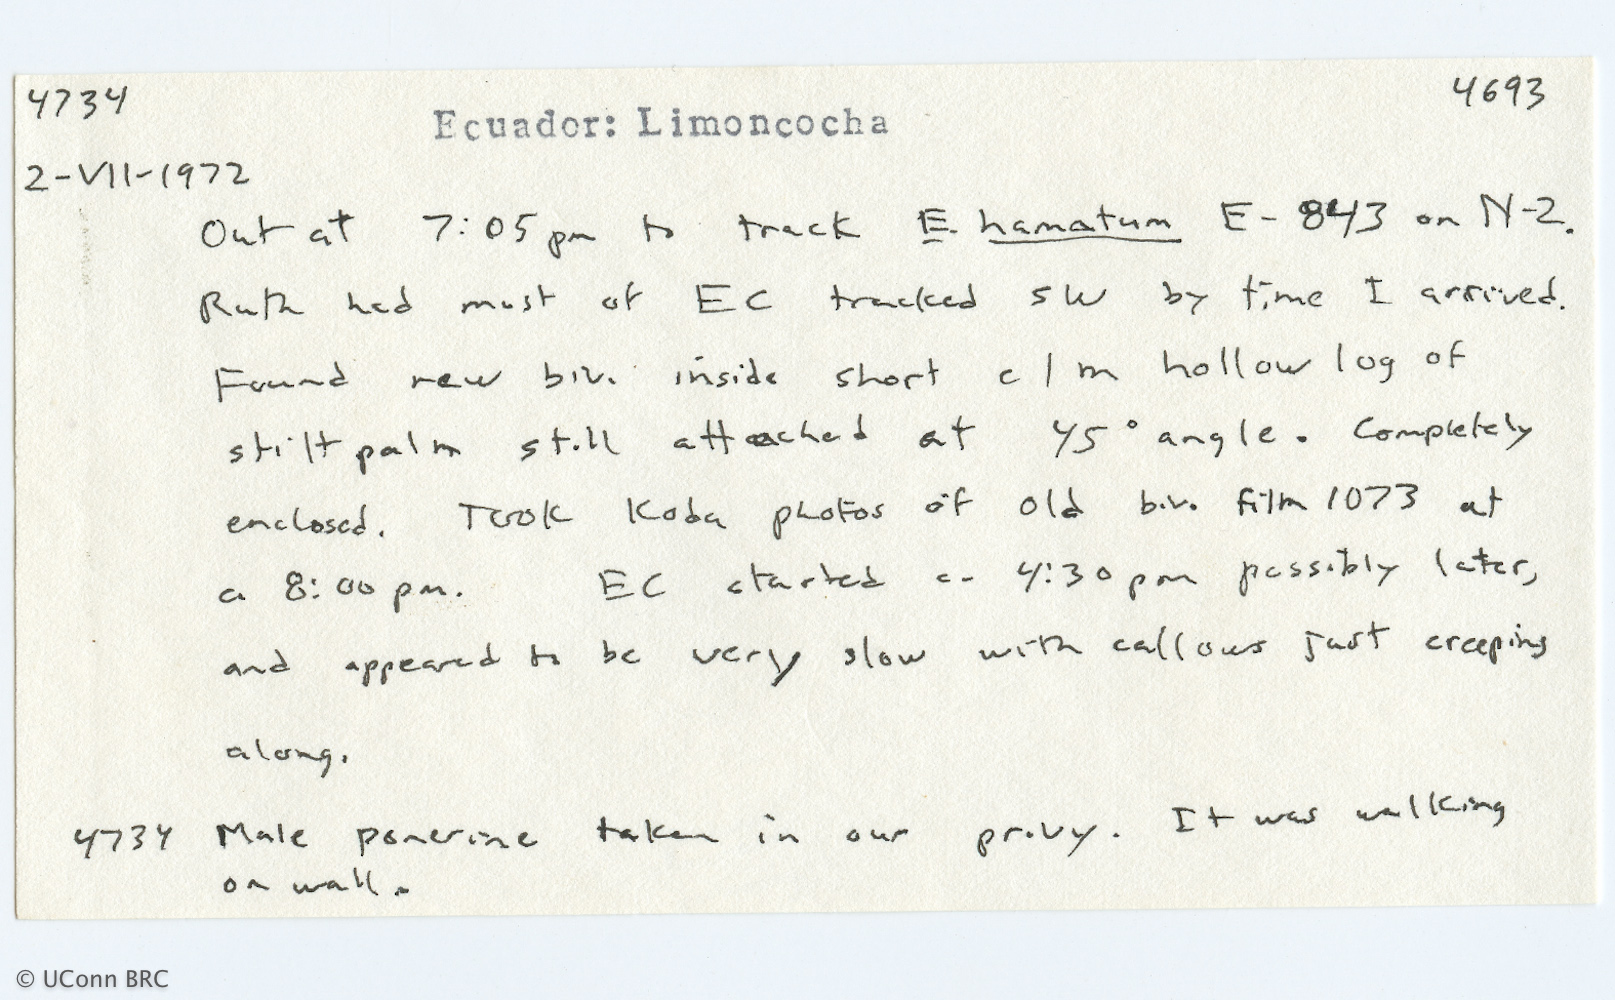 4734
4693
Ecuador: Limoncocha
2-VII-1972
Out at 7:05pm to track E. hamatum E-843 on N-2.
Ruth had most of EC tracked SW by time I arrived.
Found new biv. inside short c 1 m hollow log of
stilt palm still attached at 45° angle. Completely
enclosed. Took Koda photos of old biv. film 1073 at
c 8:00 pm. EC started c- 4:30 pm possibly later,
and appeared to be very slow with callows just creeping
along.
4734 Male ponerine taken in our privy. It was walking
on wall.
© UConn BRC